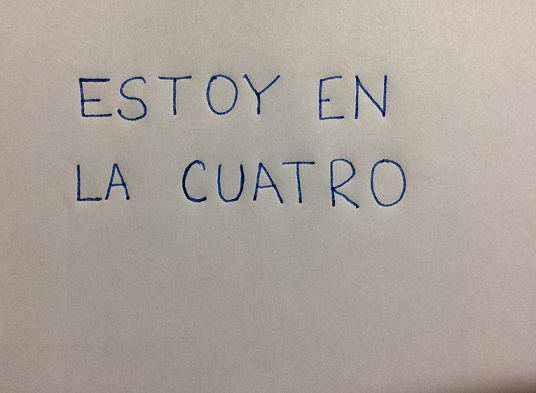 ESTOY EN
LA CUATRO